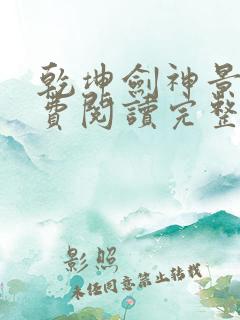 乾坤劍神景
費閱讀完整
影照
未任同意禁止轉載